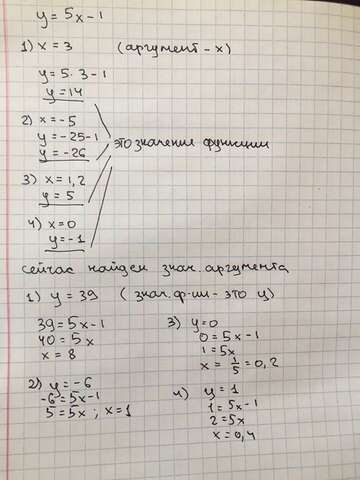 y = 5x - 1
1) x = 3 (аргумент - x)
y = 5 · 3 - 1
y = 14
2) x = -5
y = -25 - 1
y = -26
это значение функции
3) x = 1,2
y = 5
4) x = 0
y = -1
сейчас найдем знач. аргумента
1) y = 39 (знач. ф-ии - это y)
39 = 5x - 1
40 = 5x
x = 8
2) y = -6
-6 = 5x - 1
5 = 5x ; x = 1
3) y = 0
0 = 5x - 1
1 = 5x
x = 1/5 = 0,2
4) y = 1
1 = 5x - 1
2 = 5x
x = 0,4